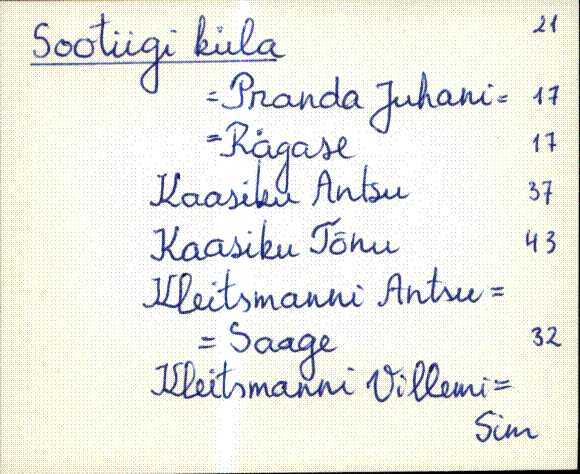 21
Sootiigi küla
=Pranda Juhani= 17
=Rågase 17
Kaasiku Antsu 37
Kaasiku Tõnu 43
Kleitsmanni Antsu =
= Saage 32
Kleitsmanni Villemi=
Sim